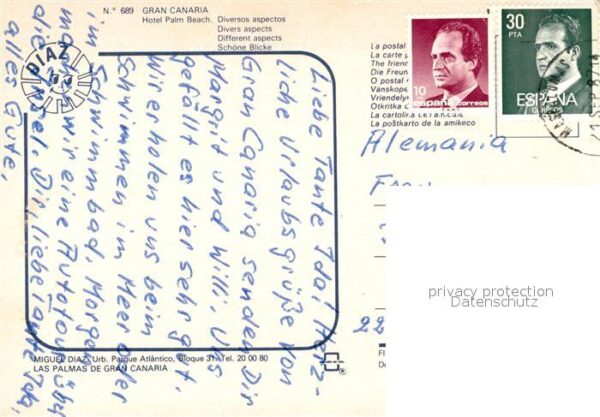 N.° 689 GRAN CANARIA
Hotel Palm Beach. Diversos aspectos
Divers aspects
Different aspects
Schöne Blicke
DIAZ
Liebe Tante Ida! Herz-
liche Urlaubsgrüße von
Gran Canaria senden Dir
Margrit und Willi. Uns
gefällt es hier sehr gut,
Wir holen uns beim
Schwimmen im Meer oder
im Schwimmbad. Morgen
wir eine Autotour über
die Insel. Dir, liebe Tante Ida,
alles Gute,
La postal
La carte
The
Die Freun
O postal
Vanskope
Vriendely
Otkritka
La cartolina
La poŝtkarto de la amikeco
10
españa correos
30
PTA
ESPAÑA
CORREOS
Alemania
privacy protection
Datenschutz
22
MIGUEL DIAZ, Urb. Parque Atlántico, Bloque 31 - Tel. 20 00 80
LAS PALMAS DE GRAN CANARIA